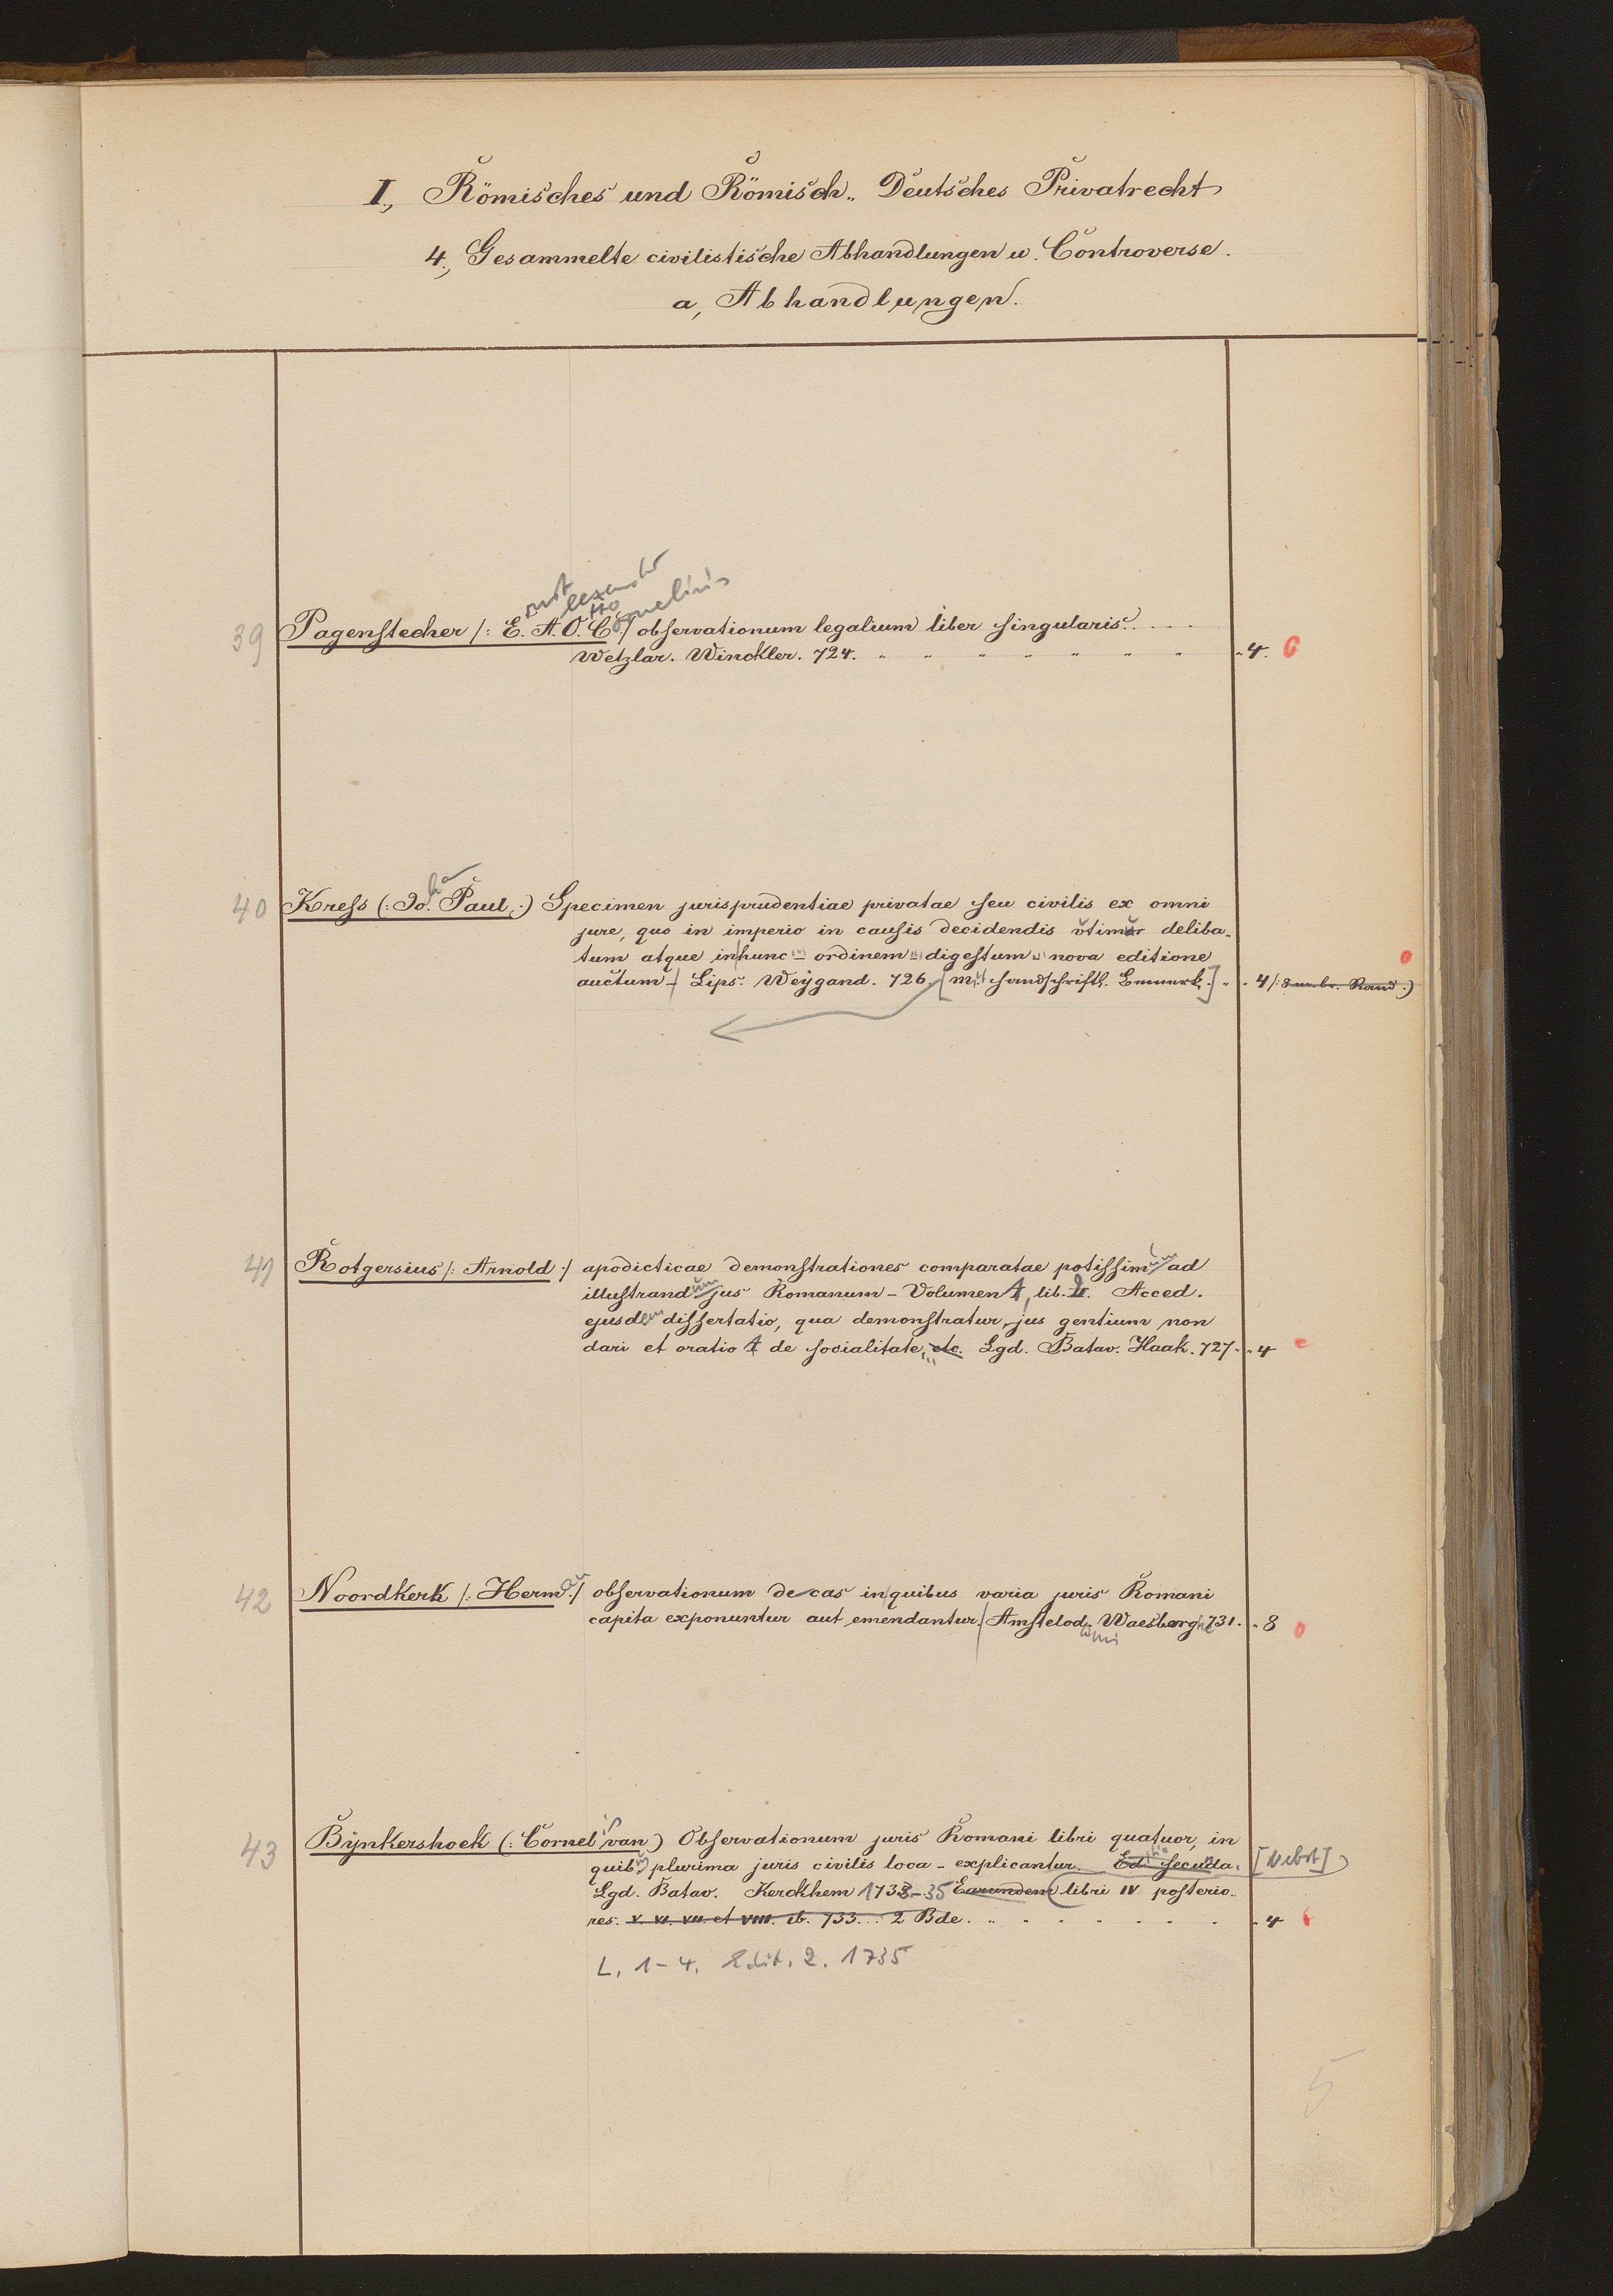 I., Römisches und Römisch-Deutsches Privatrecht
4., Gesammelte civilistische Abhandlungen u. Controverse.
a, Abhandlungen.
rnst lexander tto ornelius
39 Pagenstecher /: E. A. O. C. / observationum legalium liber singularis.
Wetzlar. Winckler. 724. " " " " " " " " 4. 0
40 Kress (: Joha. Paul :) Specimen jurisprudentiae privatae seu civilis ex omni
jure, quo in imperio in causis decidendis utimur deliba-
tum atque in hunc - ordinem digestum nova editione
auctum - Lips. Weygand. 726. [m. handschriftl. Bemerk.] " 4 /: 8 unbr. Rand :)
41 Rotgersius /: Arnold :/ apodicticae demonstrationes comparatae potissimum ad
illustrandum jus Romanum - Volumen 1, lib. 2. Acced.
ejusdem dissertatio, qua demonstratur, jus gentium non
dari et oratio 1 de socialitate, etc. Lgd. Batav. Haak. 727 " 4
42 Noordkerk /: Herman :/ observationum decas in quibus varia juris Romani
capita exponuntur aut emendantur. Amstelodami Waesberghe 731. " 8 0
43 Bynkershoek (: Cornelis van) Observationum juris Romani libri quatuor, in
quibus plurima juris civilis loca - explicantur. Editio secunda. [Nebst]
Lgd. Batav. Kerckhem 1733-35 Earundem libri IV posterio-
res. V. VI. VII. et VIII. ib. 733. 2 Bde. " " " " " " 4
L. 1-4. Edit. 2. 1735
5